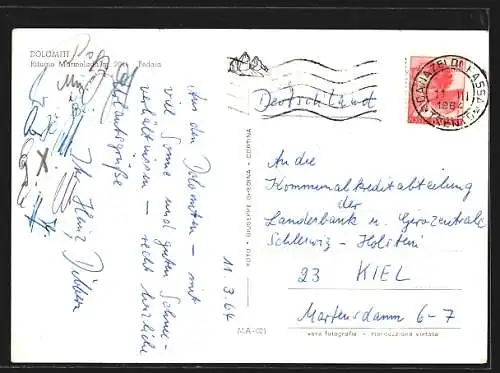 DOLOMITI
Rifugio Marmolada m. Fedaia
Aus den Dolomiten – mit
viel Sonne und guten Schnee-
verhältnissen – recht herzliche
Urlaubsgrüße
Ihr Heinz Dibbern
11.3.64
FOTO GIUSEPPE GHEDINA - CORTINA
MA-021
CANAZEI DI FASSA
11 III
1964
Deutschland
An die
Kommunalkreditabteilung
der
Landesbank u. Girozentrale
Schleswig-Holstein
23 KIEL
Martensdamm 6-7
vera fotografia - riproduzione vietata